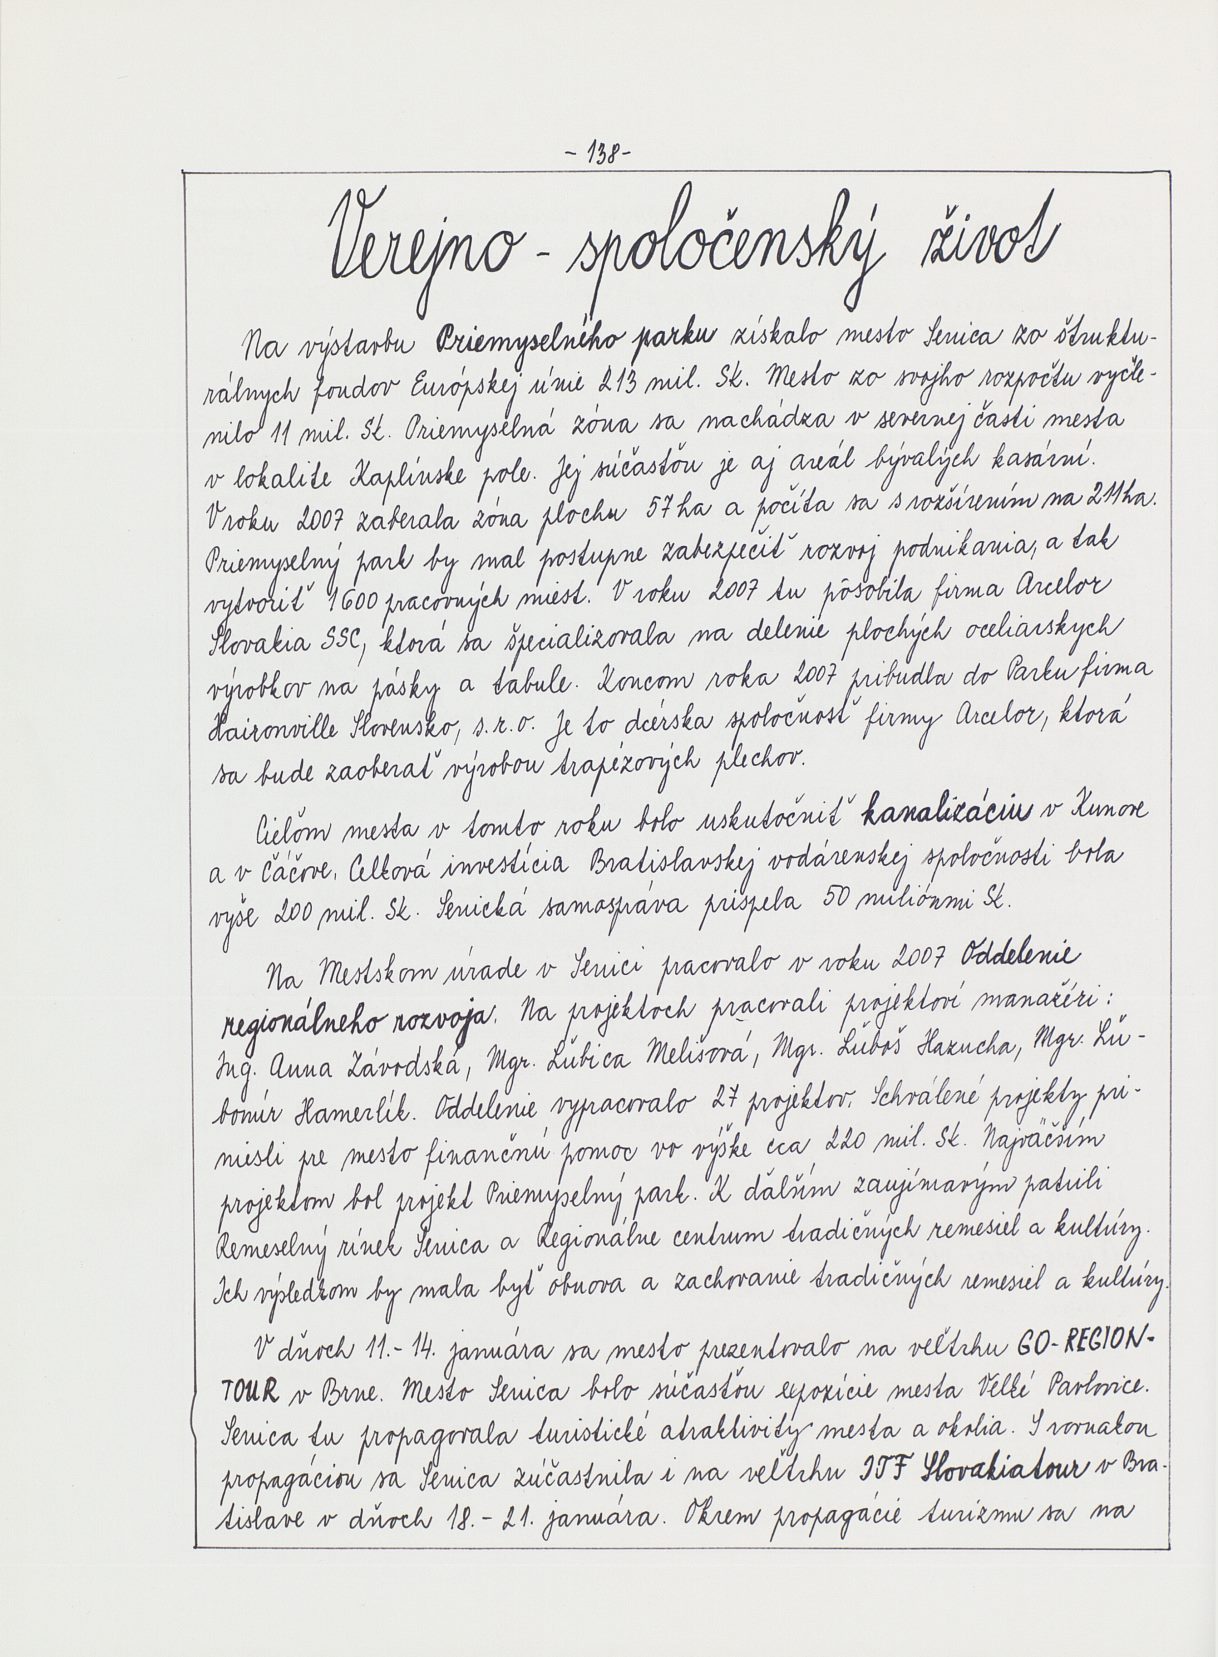 - 138 -
Verejno - spoločenský život
Na výstavbu Priemyselného parku získalo mesto Senica zo štruktu-
rálnych fondov Európskej únie 213 mil. Sk. Mesto zo svojho rozpočtu vyčle-
nilo 11 mil. Sk. Priemyselná zóna sa nachádza v severnej časti mesta
v lokalite Kaplinske pole. Jej súčasťou je aj areál bývalých kasární.
V roku 2007 zaberala zóna plochu 57 ha a počíta sa s rozšírením na 211 ha.
Priemyselný park by mal postupne zabezpečiť rozvoj podnikania, a tak
vytvoriť 1600 pracovných miest. V roku 2007 tu pôsobila firma Arcelor
Slovakia SSC, ktorá sa špecializovala na delenie plochých oceliarskych
výrobkov na pásky a tabule. Koncom roka 2007 pribudla do Parku firma
Haironville Slovensko, s.r.o. Je to dcérska spoločnosť firmy Arcelor, ktorá
sa bude zaoberať výrobou trapézových plechov.
Cieľom mesta v tomto roku bolo uskutočniť kanalizáciu v Kunove
a v Čáčove. Celková investícia Bratislavskej vodárenskej spoločnosti bola
vyše 200 mil. Sk. Senická samospráva prispela 50 miliónmi Sk.
Na Mestskom úrade v Senici pracovalo v roku 2007 Oddelenie
regionálneho rozvoja. Na projektoch pracovali projektoví manažéri:
Ing. Anna Závodská, Mgr. Ľubica Melišová, Mgr. Ľuboš Hazucha, Mgr. Ľu-
bomír Hamerlík. Oddelenie vypracovalo 27 projektov. Schválené projekty pri-
niesli pre mesto finančnú pomoc vo výške cca 220 mil. Sk. Najväčším
projektom bol projekt Priemyselný park. K ďalším zaujímavým patrili
Remeselný rínek Senica a Regionálne centrum tradičných remesiel a kultúry.
Ich výsledkom by mala byť obnova a zachovanie tradičných remesiel a kultúry.
V dňoch 11.- 14. januára sa mesto prezentovalo na veľtrhu GO-REGION-
TOUR v Brne. Mesto Senica bolo súčasťou expozície mesta Velké Pavlovice.
Senica tu propagovala turistické atraktivity mesta a okolia. S rovnakou
propagáciou sa Senica zúčastnila i na veľtrhu ITF Slovakiatour v Bra-
tislave v dňoch 18.- 21. januára. Okrem propagácie turizmu sa na